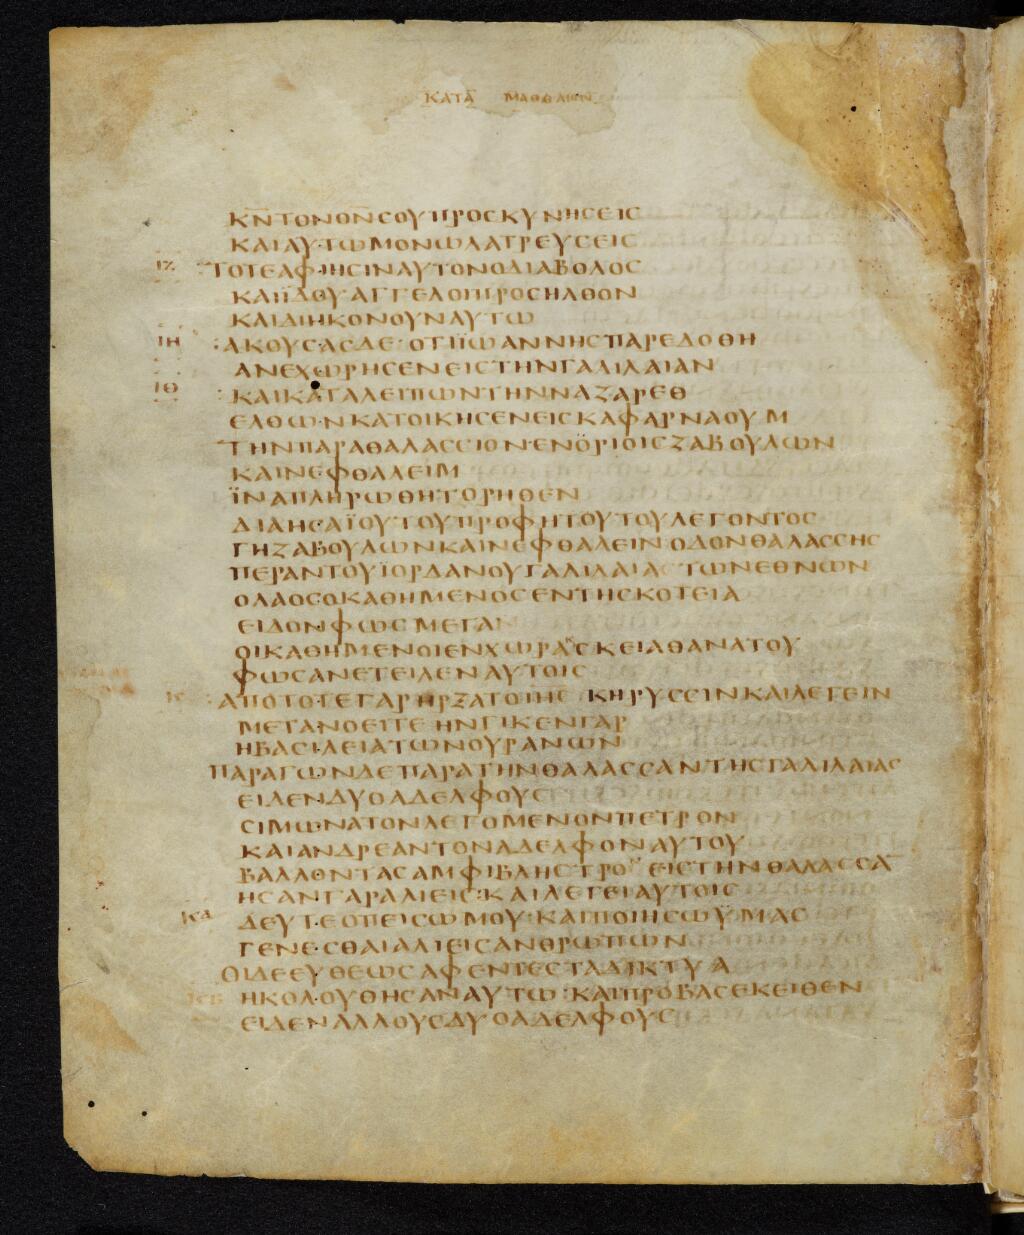 ΚΑΤΑ ΜΑΘΘΑΙΟΝ
ΚΝ ΤΟΝ ΘΝ ΣΟΥ ΠΡΟΣΚΥΝΗΣΕΙΣ
ΚΑΙ ΑΥΤΩ ΜΟΝΩ ΛΑΤΡΕΥΣΕΙΣ
ΙΖ ΤΟΤΕ ΑΦΙΗΣΙΝ ΑΥΤΟΝ Ο ΔΙΑΒΟΛΟΣ
ΚΑΙ ΪΔΟΥ ΑΓΓΕΛΟΙ ΠΡΟΣΗΛΘΟΝ
ΚΑΙ ΔΙΗΚΟΝΟΥΝ ΑΥΤΩ
ΙΗ ΑΚΟΥΣΑΣ ΔΕ ΟΤΙ ΪΩΑΝΝΗΣ ΠΑΡΕΔΟΘΗ
ΑΝΕΧΩΡΗΣΕΝ ΕΙΣ ΤΗΝ ΓΑΛΙΛΑΙΑΝ
ΙΘ ΚΑΙ ΚΑΤΑΛΕΙΠΩΝ ΤΗΝ ΝΑΖΑΡΕΘ
ΕΛΘΩΝ ΚΑΤΟΙΚΗΣΕΝ ΕΙΣ ΚΑΦΑΡΝΑΟΥΜ
ΤΗΝ ΠΑΡΑΘΑΛΑΣΣΙΟΝ ΕΝ ΟΡΙΟΙΣ ΖΑΒΟΥΛΩΝ
ΚΑΙ ΝΕΦΘΑΛΕΙΜ
ΪΝΑ ΠΛΗΡΩΘΗ ΤΟ ΡΗΘΕΝ
ΔΙΑ ΗΣΑΪΟΥ ΤΟΥ ΠΡΟΦΗΤΟΥ ΤΟΥ ΛΕΓΟΝΤΟΣ
ΓΗ ΖΑΒΟΥΛΩΝ ΚΑΙ ΝΕΦΘΑΛΕΙΝ ΟΔΟΝ ΘΑΛΑΣΣΗΣ
ΠΕΡΑΝ ΤΟΥ ΪΟΡΔΑΝΟΥ ΓΑΛΙΛΑΙΑ ΤΩΝ ΕΘΝΩΝ
Ο ΛΑΟΣ Ο ΚΑΘΗΜΕΝΟΣ ΕΝ ΤΗ ΣΚΟΤΕΙΑ
ΕΙΔΟΝ ΦΩΣ ΜΕΓΑ
ΟΙ ΚΑΘΗΜΕΝΟΙ ΕΝ ΧΩΡΑ ΣΚΕΙΑ ΘΑΝΑΤΟΥ
ΦΩΣ ΑΝΕΤΕΙΛΕΝ ΑΥΤΟΙΣ
Κ ΑΠΟ ΤΟΤΕ ΓΑΡ ΗΡΞΑΤΟ Ο ΙΗΣ ΚΗΡΥΣΣΙΝ ΚΑΙ ΛΕΓΕΙΝ
ΜΕΤΑΝΟΕΙΤΕ ΗΝΓΙΚΕΝ ΓΑΡ
Η ΒΑΣΙΛΕΙΑ ΤΩΝ ΟΥΡΑΝΩΝ
ΠΑΡΑΓΩΝ ΔΕ ΠΑΡΑ ΤΗΝ ΘΑΛΑΣΣΑΝ ΤΗΣ ΓΑΛΙΛΑΙΑΣ
ΕΙΔΕΝ ΔΥΟ ΑΔΕΛΦΟΥΣ
ΣΙΜΩΝΑ ΤΟΝ ΛΕΓΟΜΕΝΟΝ ΠΕΤΡΟΝ
ΚΑΙ ΑΝΔΡΕΑΝ ΤΟΝ ΑΔΕΛΦΟΝ ΑΥΤΟΥ
ΒΑΛΛΟΝΤΑΣ ΑΜΦΙΒΛΗΣΤΡΟΝ ΕΙΣ ΤΗΝ ΘΑΛΑΣΣΑ̅
ΗΣΑΝ ΓΑΡ ΑΛΙΕΙΣ ΚΑΙ ΛΕΓΕΙ ΑΥΤΟΙΣ
ΚΑ ΔΕΥΤΕ ΟΠΕΙΣΩ ΜΟΥ ΚΑΙ ΠΟΙΗΣΩ ΫΜΑΣ
ΓΕΝΕΣΘΑΙ ΑΛΙΕΙΣ ΑΝΘΡΩΠΩΝ
ΟΙ ΔΕ ΕΥΘΕΩΣ ΑΦΕΝΤΕΣ ΤΑ ΔΙΚΤΥΑ
ΚΒ ΗΚΟΛΟΥΘΗΣΑΝ ΑΥΤΩ ΚΑΙ ΠΡΟΒΑΣ ΕΚΕΙΘΕΝ
ΕΙΔΕΝ ΑΛΛΟΥΣ ΔΥΟ ΑΔΕΛΦΟΥΣ